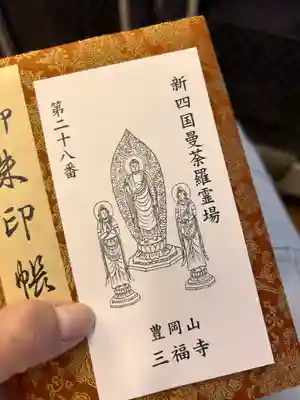 新四国曼荼羅霊場
第二十八番
豊岡山
三福寺
朱印帳